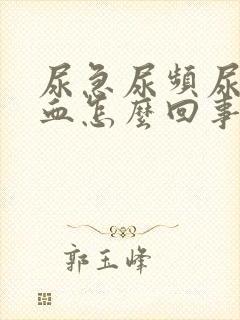 尿急尿頻尿
血怎麼回事
郭玉峰